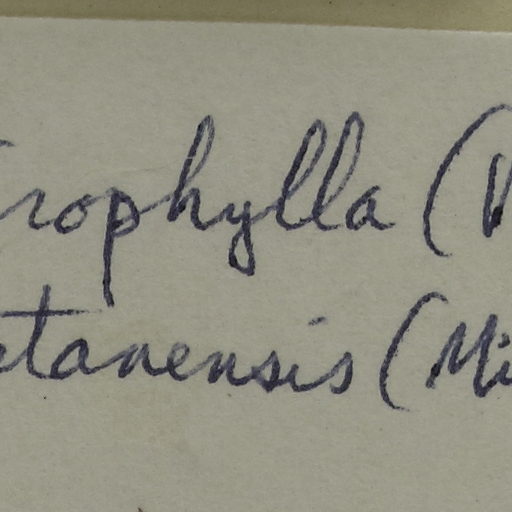 rophylla (
tanensis (Mi